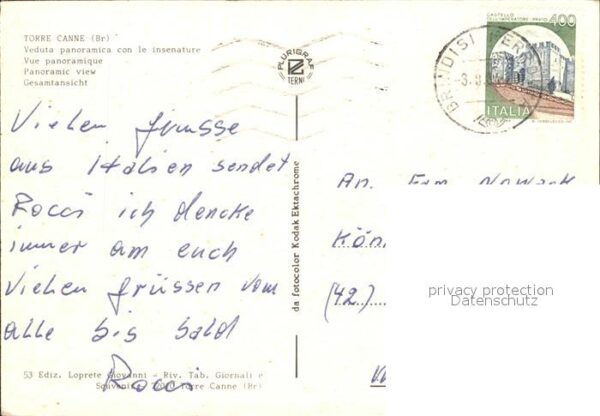 TORRE CANNE (Br)
Veduta panoramica con le insenature
Vue panoramique
Panoramic view
Gesamtansicht
PLURIGRAF
TERNI
CASTELLO
DELL'IMPERATORE - PRATO 400
ITALIA
BRINDISI
3.8
Viehen grüsse
aus Italien sendet
Rocci ich dencke
immer am euch
Viehen grüssen vom
alle bis bald
Rocci
da fotocolor Kodak Ektachrome
An. Fam Nowack
Kön
(42)
privacy protection
Datenschutz
53 Ediz. Loprete Giovanni - Riv. Tab. Giornali e
Souvenirs 72010 Torre Canne (Br)